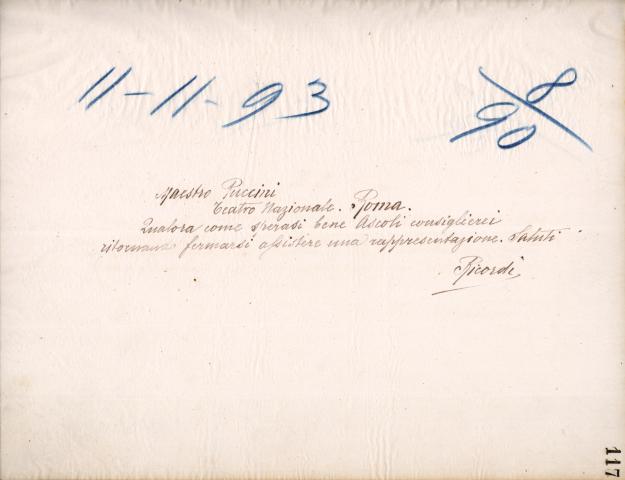 11-11-93
8/90
Maestro Puccini
Teatro Nazionale. Roma.
Qualora come sperasi bene Ascoli consiglierei
fermarsi assistere una rappresentazione. Saluti
Ricordi
117